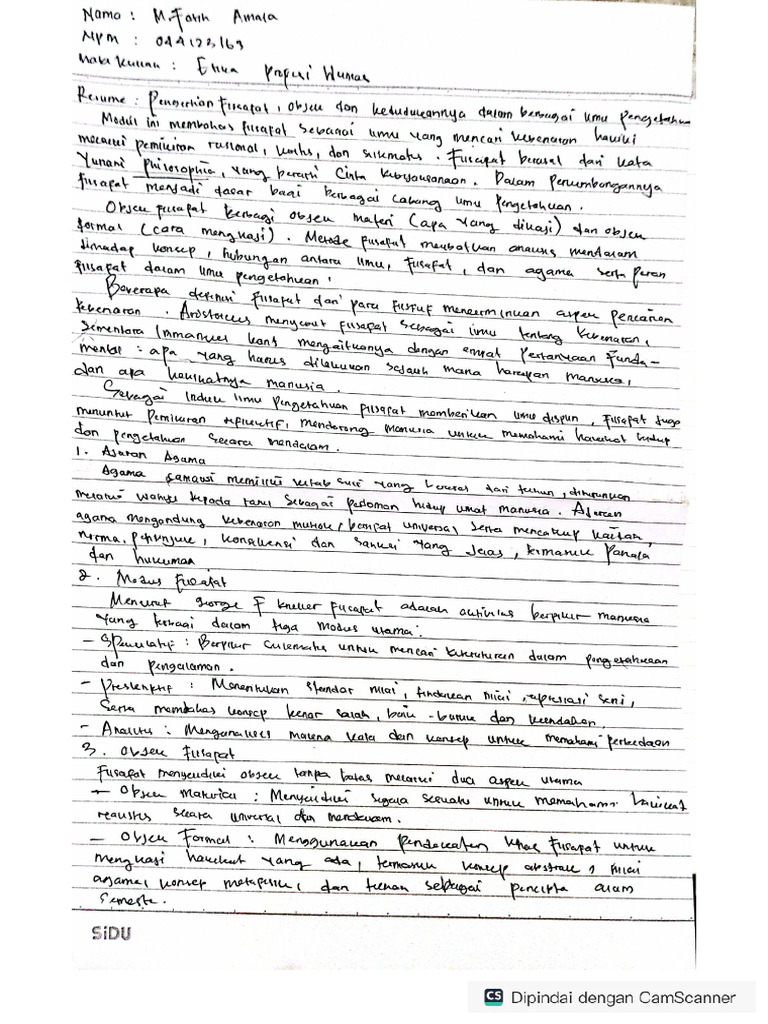 Nama : M. Fatih Amala
NPM : 044123163
Mata Kuliah : Etika Profesi Humas
Resume : Pengertian Filsafat, objek dan kedudukannya dalam berbagai ilmu pengetahuan
Modul ini membahas filsafat sebagai ilmu yang mencari kebenaran hakiki
melalui pemikiran rasional, kritis, dan sistematis. Filsafat berasal dari kata
Yunani philosophia, yang berarti cinta kebijaksanaan. Dalam perkembangannya
filsafat menjadi dasar bagi berbagai cabang ilmu pengetahuan.
Objek filsafat terbagi objek materi (apa yang dikaji) dan objek
formal (cara mengkaji). Metode filsafat melibatkan analisis mendalam
terhadap konsep, hubungan antara ilmu, filsafat, dan agama serta peran
filsafat dalam ilmu pengetahuan.
Beberapa definisi filsafat dari para filsuf mencerminkan aspek pencarian
kebenaran. Aristoteles menyebut filsafat sebagai ilmu tentang kebenaran,
sementara Immanuel Kant mengaitkannya dengan empat pertanyaan funda-
mental : apa yang harus dilakukan sejauh mana harapan manusia,
dan apa hakikatnya manusia.
Sebagai induk ilmu pengetahuan filsafat memberikan ilmu disiplin, filsafat juga
menuntut pemikiran reflektif, mendorong manusia untuk memahami hakikat hidup
dan pengetahuan secara mendalam.
1. Ajaran Agama
Agama samawi memiliki kitab suci yang berasal dari tuhan, diturunkan
melalui wahyu kepada rasul sebagai pedoman hidup umat manusia. Ajaran
agama mengandung kebenaran mutlak, bersifat universal serta mencakup kaidah,
norma, petunjuk, konsekuensi dan sanksi yang jelas, termasuk pahala
dan hukuman
2. Modus Filsafat
Menurut George F Kneller filsafat adalah aktivitas berpikir manusia
yang terbagi dalam tiga modus utama:
- Spekulatif : Berpikir sistematis untuk mencari keteraturan dalam pengetahuan
dan pengalaman.
- Preskriptif : Menentukan standar nilai, tindakan nilai, apresiasi seni,
serta membahas konsep benar salah, baik - buruk dan keindahan.
- Analitis : Menganalisis makna kata dan konsep untuk memahami perbedaan
3. Objek Filsafat
Filsafat menyelidiki objek tanpa batas melalui dua aspek utama
- Objek Material : Menyelidiki segala sesuatu untuk memahami hakikat
realitas secara universal dan mendalam.
- Objek Formal : Menggunakan pendekatan khas filsafat untuk
mengkaji hakikat yang ada, termasuk konsep abstrak, nilai
agama, konsep metafisik, dan tuhan sebagai pencipta alam
Semesta.
SiDU
CS Dipindai dengan CamScanner